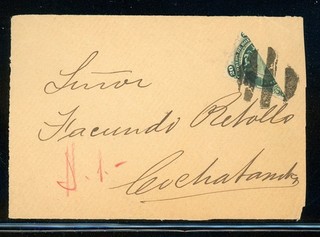 Señor
Facundo Rebollo
Cochabamba